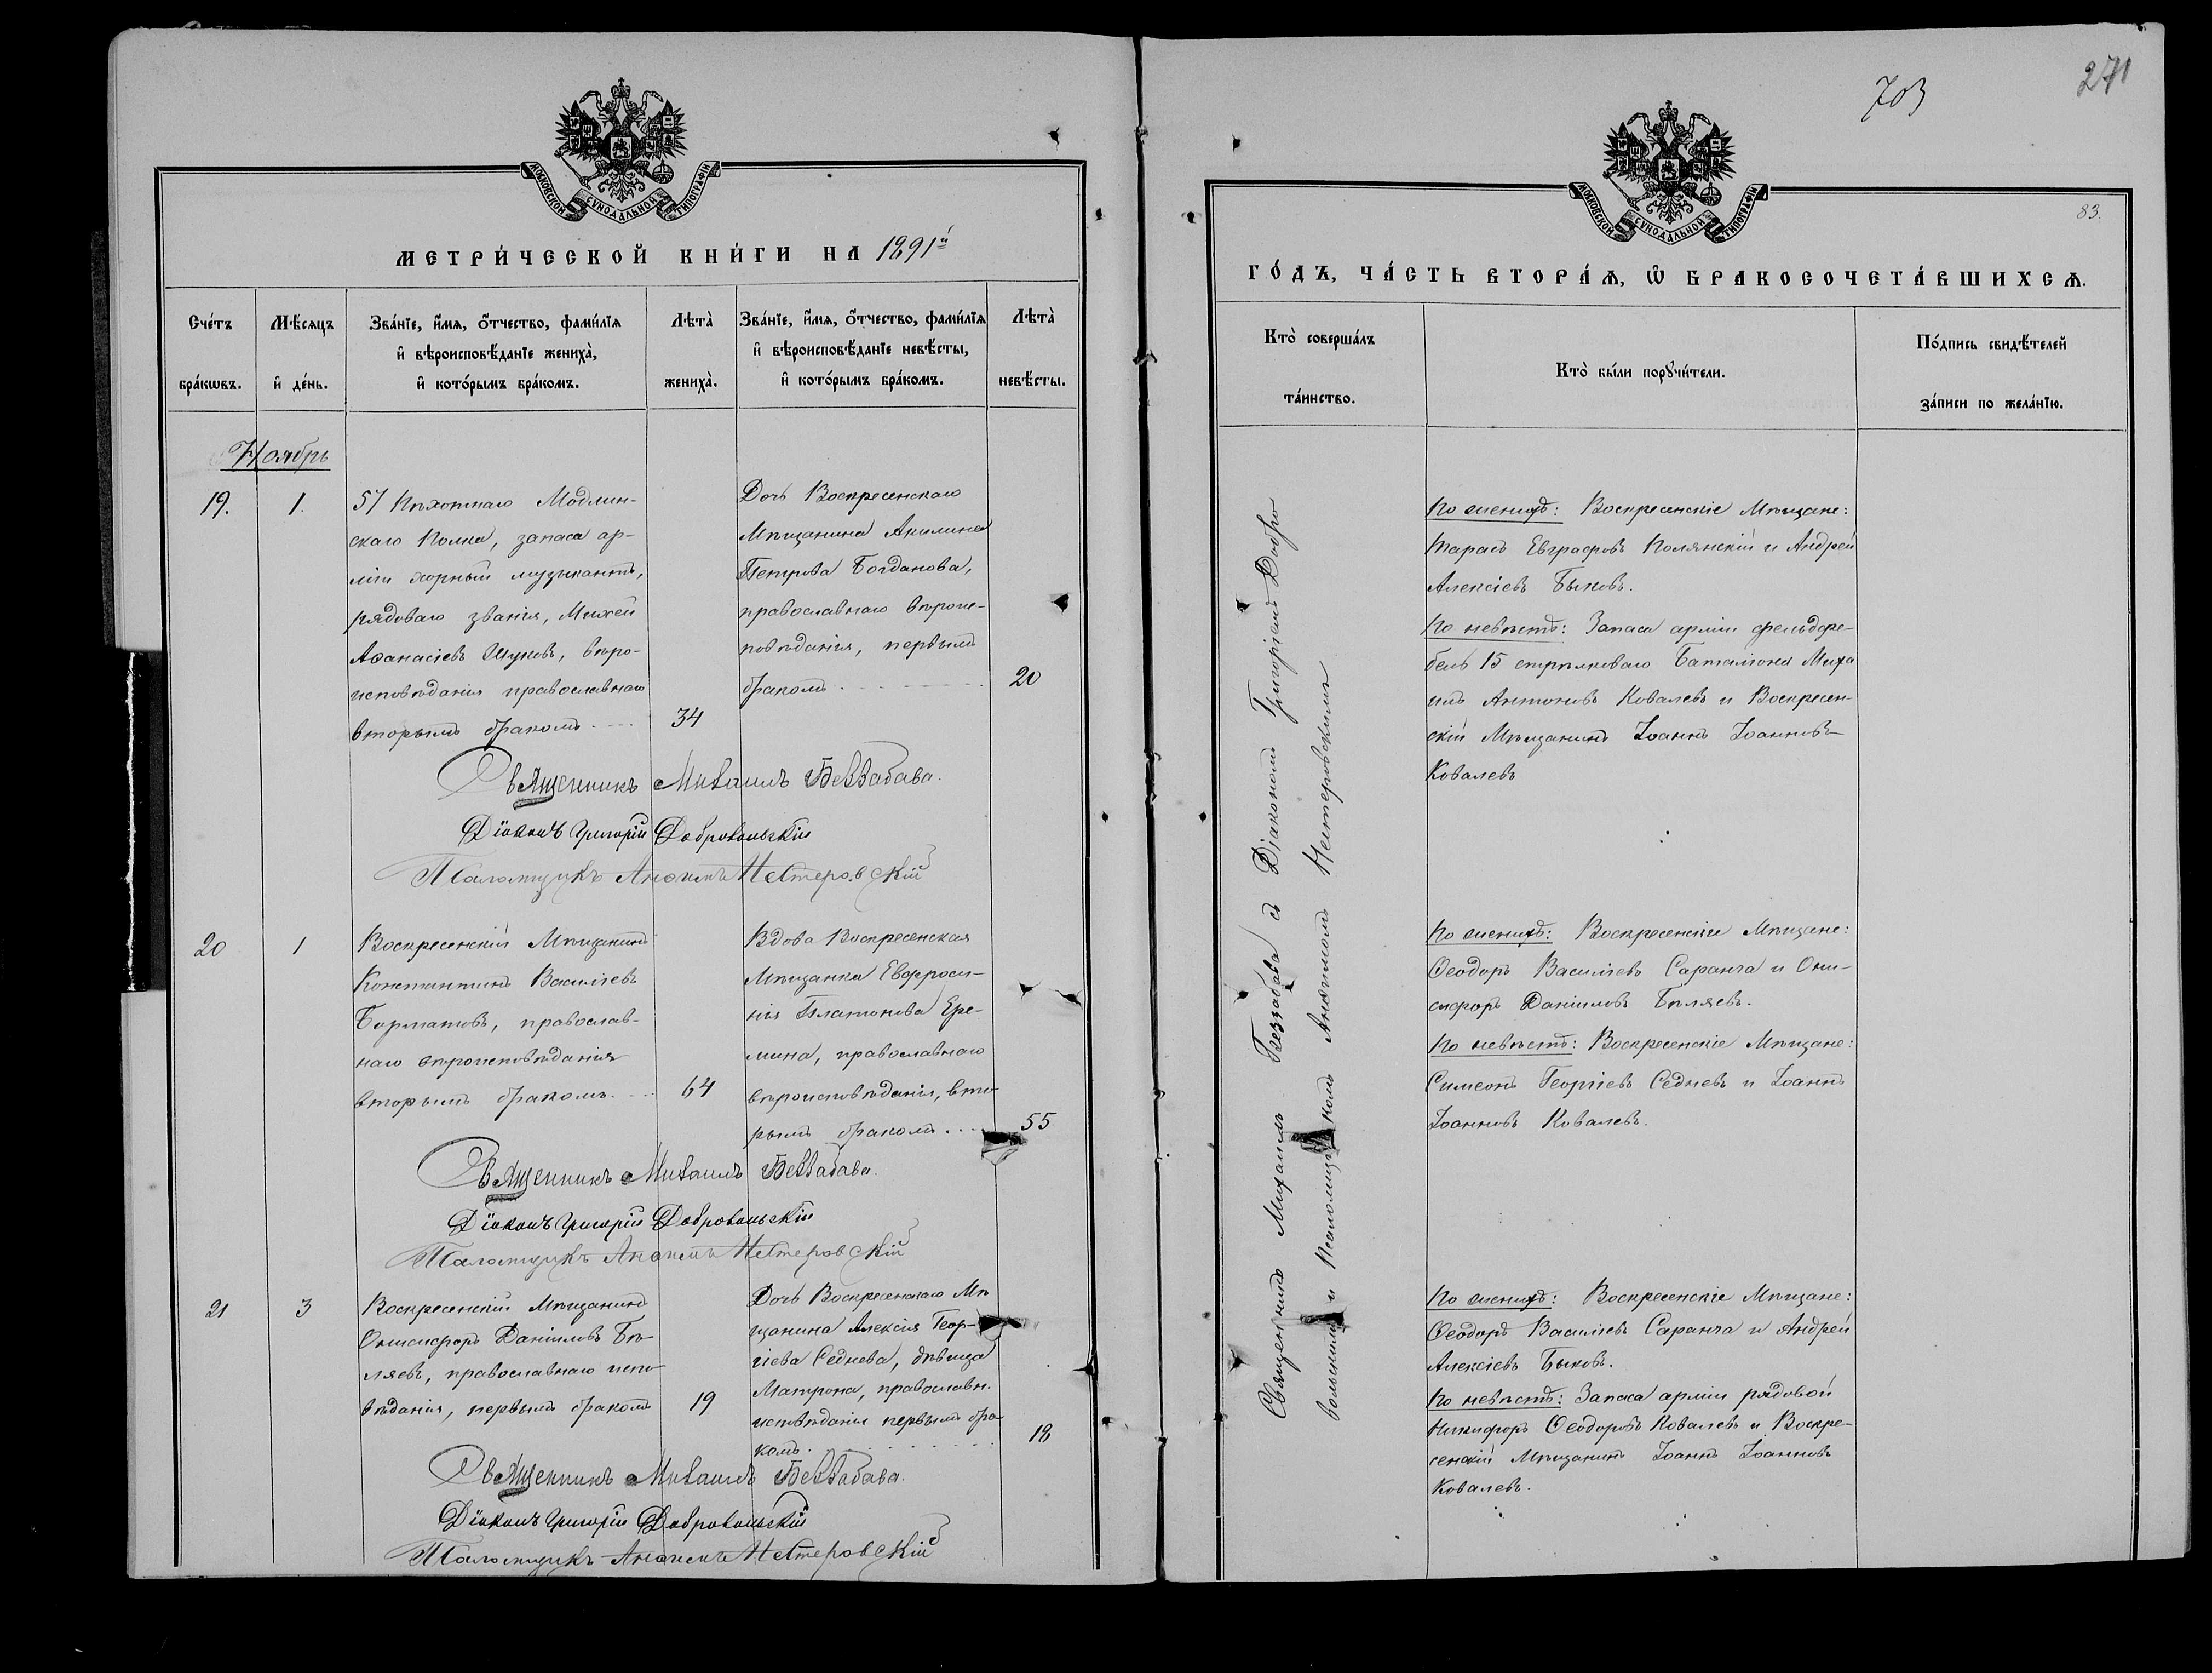 МОСКОВСКОЙ СУНОДАЛЬНОЙ ТИПОГРАФІИ
МЕТРИ́ЧЕСКОЙ КНИ́ГИ НА 1891й
Сче́тъ бра́кѡвъ.
Мѣ́сяцъ и҆ де́нь.
Зва́нїе, и҆́мѧ, ѻ҆́тчество, фами́лїѧ
и҆ вѣроисповѣ́данїе жениха̀,
и҆ кото́рымъ бра́комъ.
Лѣта̀ жениха̀.
Зва́нїе, и҆́мѧ, ѻ҆́тчество, фами́лїѧ
и҆ вѣроисповѣ́данїе невѣ́сты,
и҆ кото́рымъ бра́комъ.
Лѣта̀ невѣ́сты.
Ноябрь
19.
1.
57 Пѣхотнаго Модлин-
скаго Полка, запаса ар-
міи хорный музыкантъ,
рядоваго званія, Михей
Аѳанасіевъ Щуковъ, вѣро-
исповѣданія православнаго
вторымъ бракомъ
34
Дочь Воскресенскаго
Мѣщанина Акилина
Петрова Богданова,
православнаго вѣроис-
повѣданія, первымъ
бракомъ
20
Священникъ Михаилъ Беззабава.
Діаконъ Григорій Добровольскій
Псаломщикъ Анѳимъ Нестеровскій
20
1
Воскресенскій Мѣщанинъ
Константинъ Василіевъ
Борматовъ, православ-
наго вѣроисповѣданія
вторымъ бракомъ.
64
Вдова Воскресенская
Мѣщанка Евфроси-
нія Платонова Ере-
мина, православнаго
вѣроисповѣданія, вто-
рымъ бракомъ
55
Священникъ Михаилъ Беззабава.
Діаконъ Григорій Добровольскій
Псаломщикъ Анѳимъ Нестеровскій
21
3
Воскресенскій Мѣщанинъ
Онисифоръ Даніиловъ Бѣ-
ляевъ, православнаго испо-
вѣданія, первымъ бракомъ
19
Дочь Воскресенскаго Мѣ
щанина Алексія Геор-
гіева Седнева, дѣвица
Матрона, православн.
исповѣданія первымъ бра-
комъ.
18
Священникъ Михаилъ Беззабава.
Діаконъ Григорій Добровольскій
Псаломщикъ Анѳимъ Нестеровскій
703
271
МОСКОВСКОЙ СУНОДАЛЬНОЙ ТИПОГРАФІИ
83.
ГО́ДЪ, ЧА́СТЬ ВТОРА́Ѧ, Ѡ҆ БРАКОСОЧЕТА́ВШИХСѦ.
Кто̀ соверша́лъ
та́инство.
Кто̀ бы́ли порꙋчи́тели.
По́дпись свидѣ́телей
за́писи по жела́нїю.
Священникъ Михаилъ Беззабава съ Діакономъ Григоріемъ Добро
вольскимъ и Псаломщикомъ Анѳимомъ Нестеровскимъ
По женихѣ: Воскресенскіе Мѣщане:
Тарасъ Евграфовъ Полянскій и Андрей
Алексіевъ Быковъ.
По невѣстѣ: Запаса арміи фельдфе-
бель 15 стрѣлковаго Баталіона Миха
илъ Антоновъ Ковалевъ и Воскресен-
скій Мѣщанинъ Іоаннъ Іоанновъ
Ковалевъ
По женихѣ: Воскресенскіе Мѣщане:
Ѳеодоръ Василіевъ Саранча и Они-
сифоръ Даніиловъ Бѣляевъ.
По невѣстѣ: Воскресенскіе Мѣщане:
Симеонъ Георгіевъ Седневъ и Іоаннъ
Іоанновъ Ковалевъ.
По женихѣ: Воскресенскіе Мѣщане:
Ѳеодоръ Василіевъ Саранча и Андрей
Алексіевъ Быковъ.
По невѣстѣ: Запаса арміи рядовой
Никифоръ Ѳеодоровъ Ковалевъ и Воскре-
сенскій Мѣщанинъ Іоаннъ Іоанновъ
Ковалевъ.